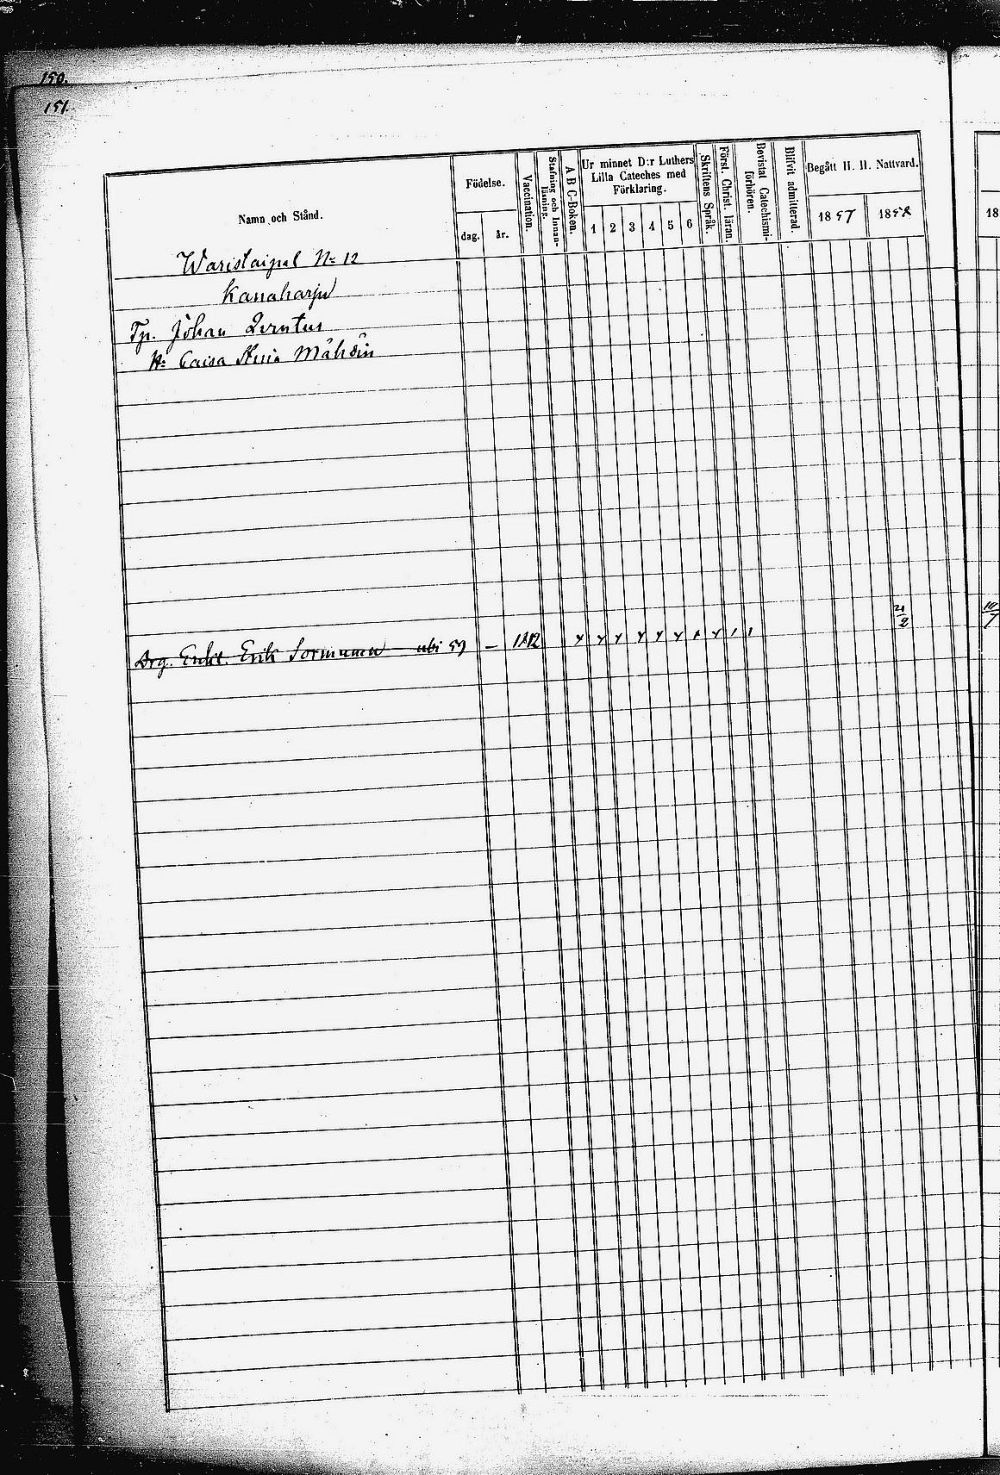 150.
151.
Namn och Stånd.
Födelse.
dag.
år.
Vaccination.
Stafning och Innanläsning.
A B C-Boken.
Ur minnet D:r Luthers
Lilla Cateches med
Förklaring.
1 2 3 4 5 6
Skriftens Språk.
Först. Christ. läran.
Bevistat Catechismiförhören.
Blifvit admitterad.
Begått H. H. Nattvard.
1857
1858
18
Waristaipal N: 12
Kanaharju
Tp. Johan
H: Caisa Måhsin
Drg. Enkl. Erik Sormunen ubi 59 – 1812
21/2
10/7